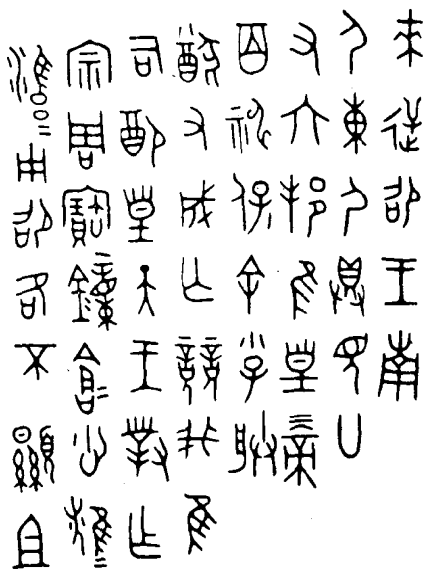 來逆卲王南
尸東尸具見廿
又六邦隹皇上帝
百神保余小子朕
猷又成亡競我隹
司配皇天王對乍
宗周寶鐘倉=悤雉=
雝=用卲各不顯且